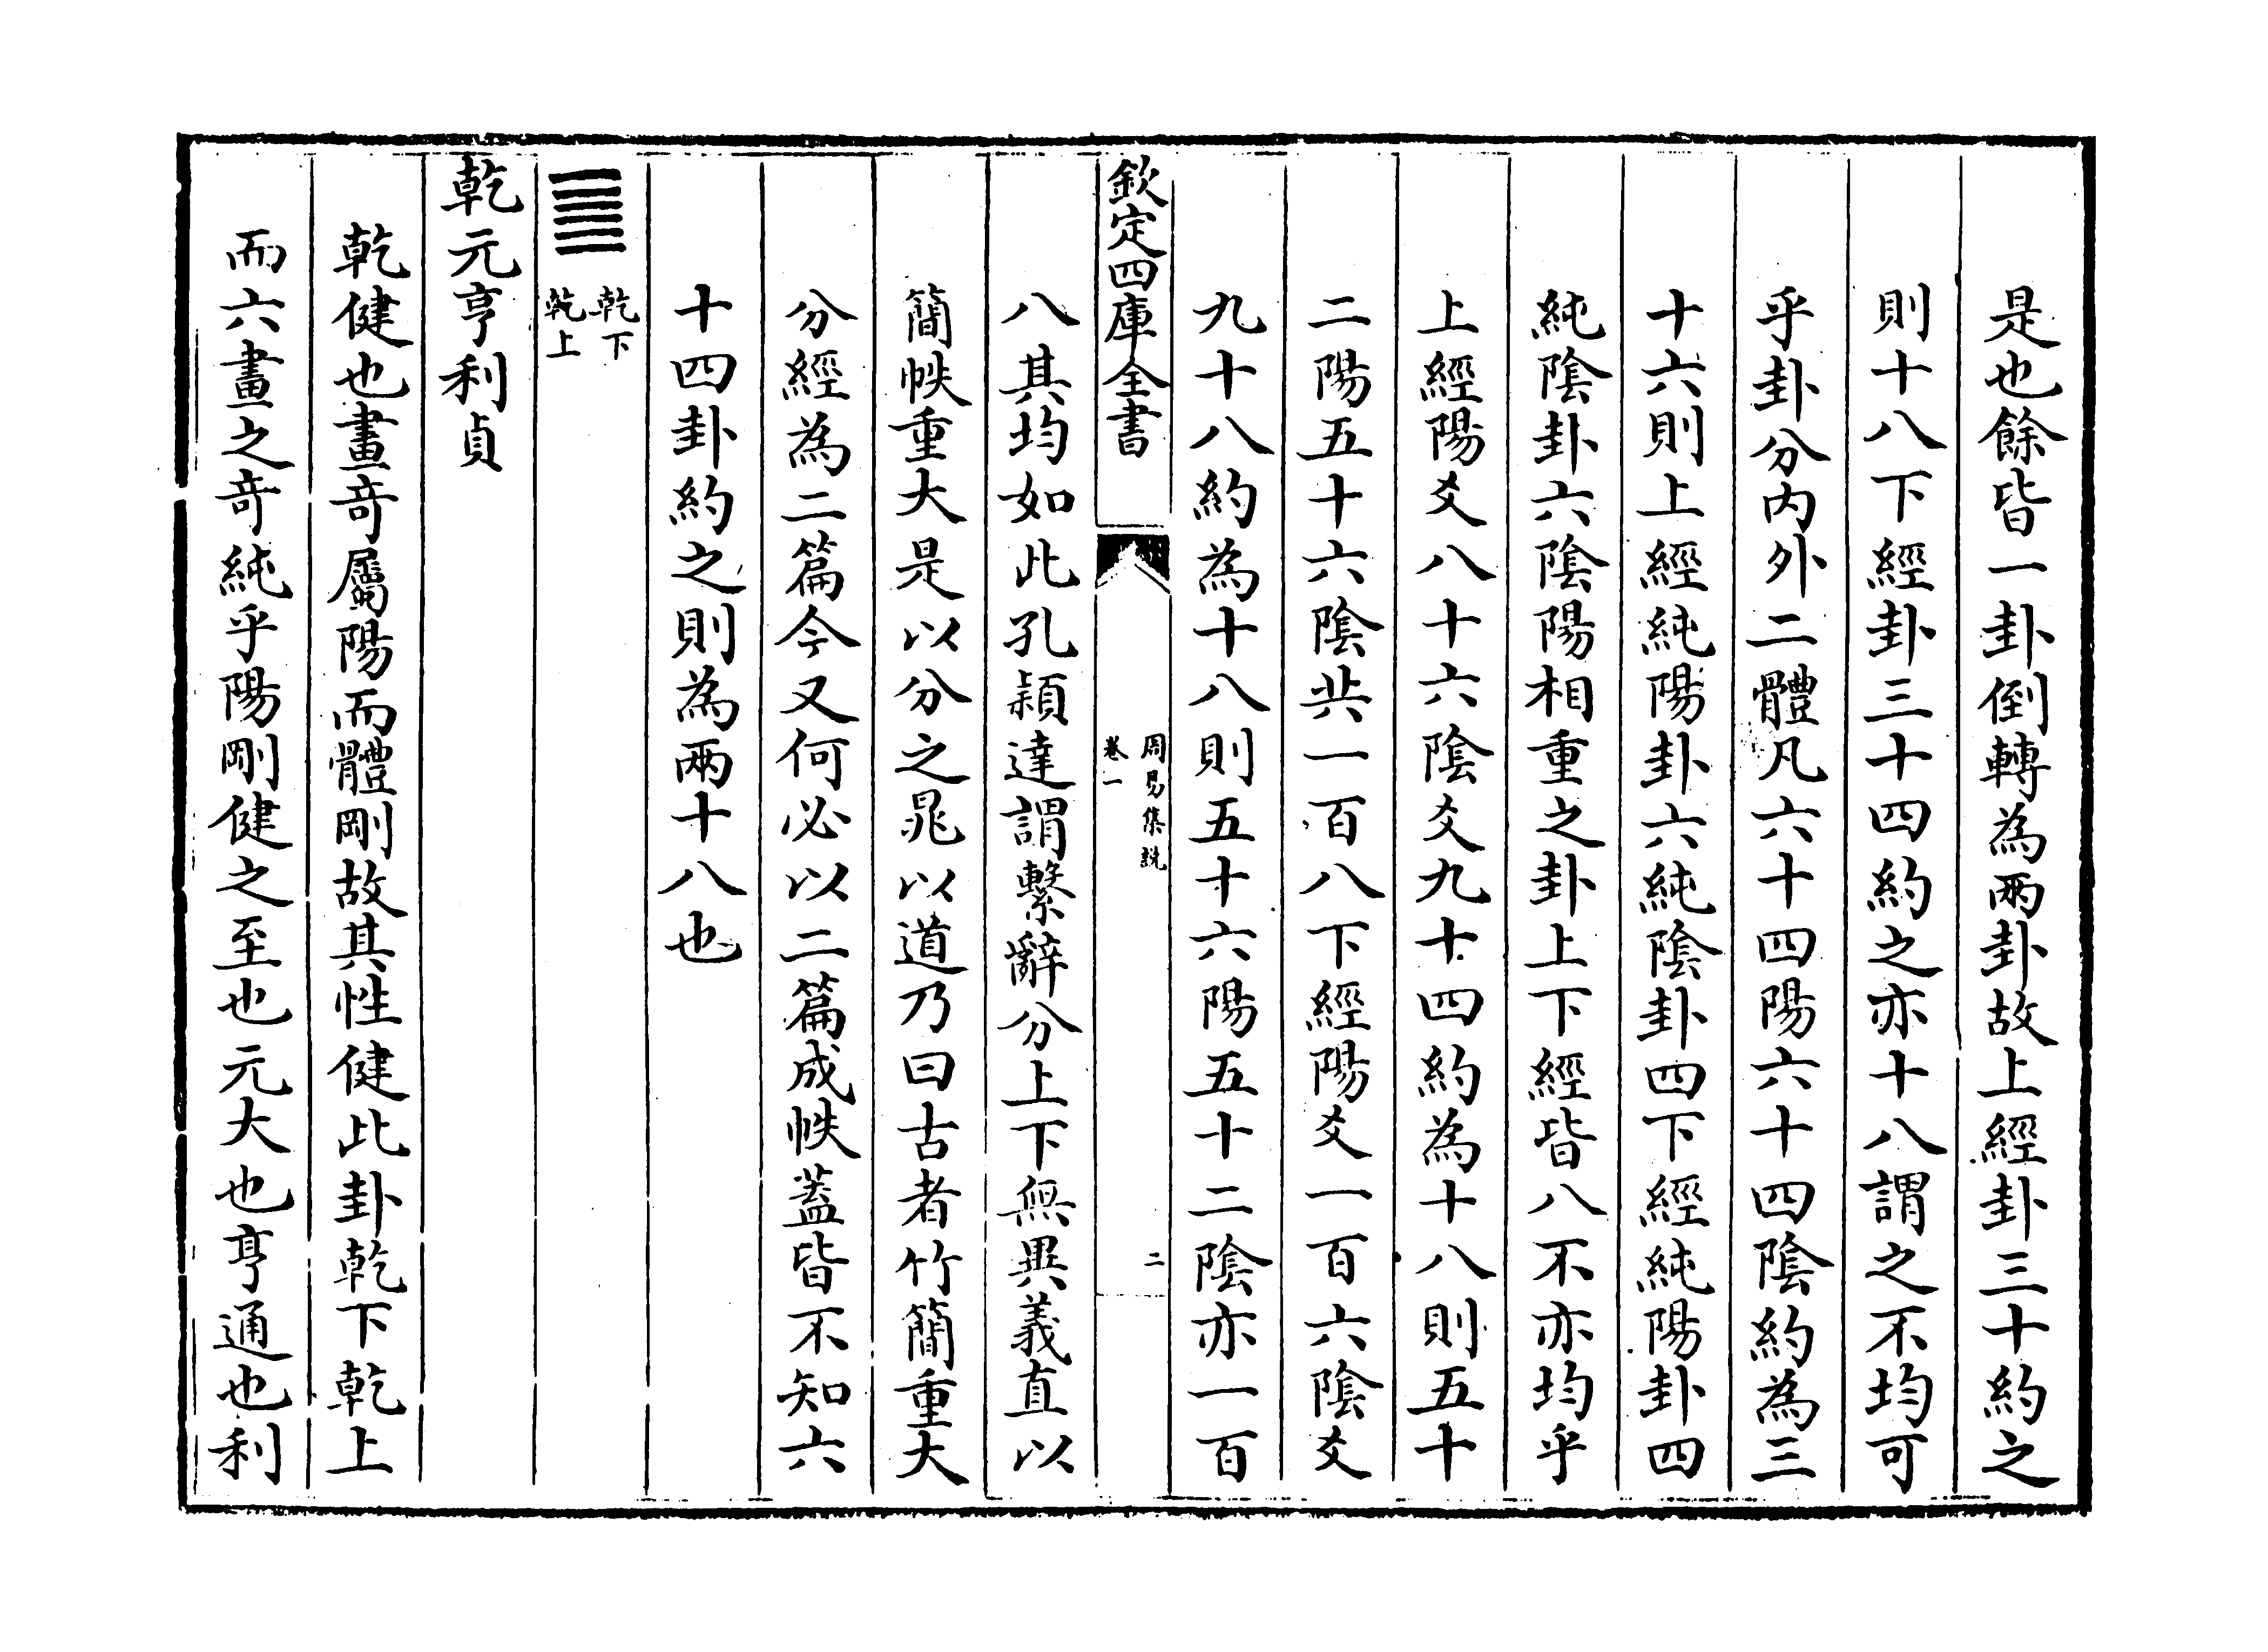 是也餘皆一卦倒轉為兩卦故上經卦三十約之
則十八下經卦三十四約之亦十八謂之不均可
乎卦分内外二體凡六十四陽六十四陰約為三
十六則上經純陽卦六純陰卦四下經純陽卦四
純陰卦六陰陽相重之卦上下經皆八不亦均乎
上經陽爻八十六陰爻九十四約為十八則五十
二陽五十六陰共一百八下經陽爻一百六陰爻
九十八約為十八則五十六陽五十二陰亦一百
欽定四庫全書
周易集說
卷一
二
八其均如此孔穎達謂繫辭分上下無異義直以
簡帙重大是以分之晁以道乃曰古者竹簡重大
分經為二篇今又何必以二篇成帙蓋皆不知六
十四卦約之則為兩十八也
䷀乾下
乾上
乾元亨利貞
乾健也畫奇屬陽而體剛故其性健此卦乾下乾上
而六畫之奇純乎陽剛健之至也元大也亨通也利